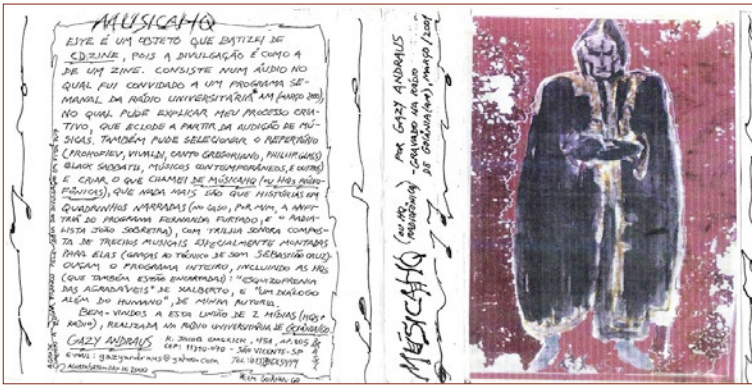 MÚSICAHQ
ESTE É UM OBJETO QUE BATIZEI DE
CDZINE, POIS A DIVULGAÇÃO É COMO A
DE UM ZINE. CONSISTE NUM ÁUDIO NO
QUAL FUI CONVIDADO A UM PROGRAMA SE-
MANAL DA RÁDIO UNIVERSITÁRIA AM (MARÇO
NO QUAL PUDE EXPLICAR MEU PROCESSO CRIA-
TIVO, QUE ECLODE A PARTIR DA AUDIÇÃO DE MÚ-
SICAS. TAMBÉM PUDE SELECIONAR O REPERTÓRIO
(PROKOFIEV, VIVALDI, CANTO GREGORIANO, PHILIP GLASS,
BLACK SABBATH, MÚSICOS CONTEMPORÂNEOS, E OUTROS)
E CRIAR O QUE CHAMEI DE MÚSICAHQ (OU HQS RADIO-
FÔNICAS), QUE NADA MAIS SÃO QUE HISTÓRIAS EM
QUADRINHOS NARRADAS (NO CASO, POR MIM, A ANFI-
TRIÃ DO PROGRAMA FERNANDA FURTADO, E O RADIA-
LISTA JOÃO SOBREIRA), COM TRILHA SONORA COMPOS-
TA DE TRECHOS MUSICAIS ESPECIALMENTE MONTADAS
PARA ELAS (GRAÇAS AO TÉCNICO DE SOM SEBASTIÃO CRUZ).
OUÇAM O PROGRAMA INTEIRO, INCLUINDO AS HQS
(QUE TAMBÉM ESTÃO ENCARTADAS): "ESQUIZOFRENIA
DAS AGRADÁVEIS" DE XALBERTO, E "UM DIÁLOGO
ALÉM DO HUMANO", DE MINHA AUTORIA.
BEM-VINDOS A ESTA UNIÃO DE 2 MÍDIAS (HQS+
RÁDIO), REALIZADA NA RÁDIO UNIVERSITÁRIA DE GOIÂNIA/GO.
GAZY ANDRAUS
R. JACOB EMERICK,
CEP: SÃO VICENTE-SP
EMAIL: gazyandraus@yahoo.com
MÚSICAHQ (OU HQ RADIOFÔNICA)
POR GAZY ANDRAUS
- GRAVADO NA RÁDIO
DE GOIÂNIA (AM), MARÇO/2001